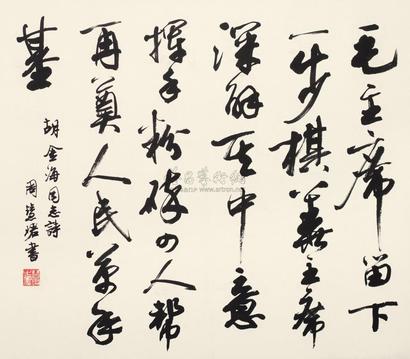 毛主席留下
一步棋华主席
深解其中意
挥手粉碎四人帮
再奠人民万年
基
胡金海同志詩
周慧珺書